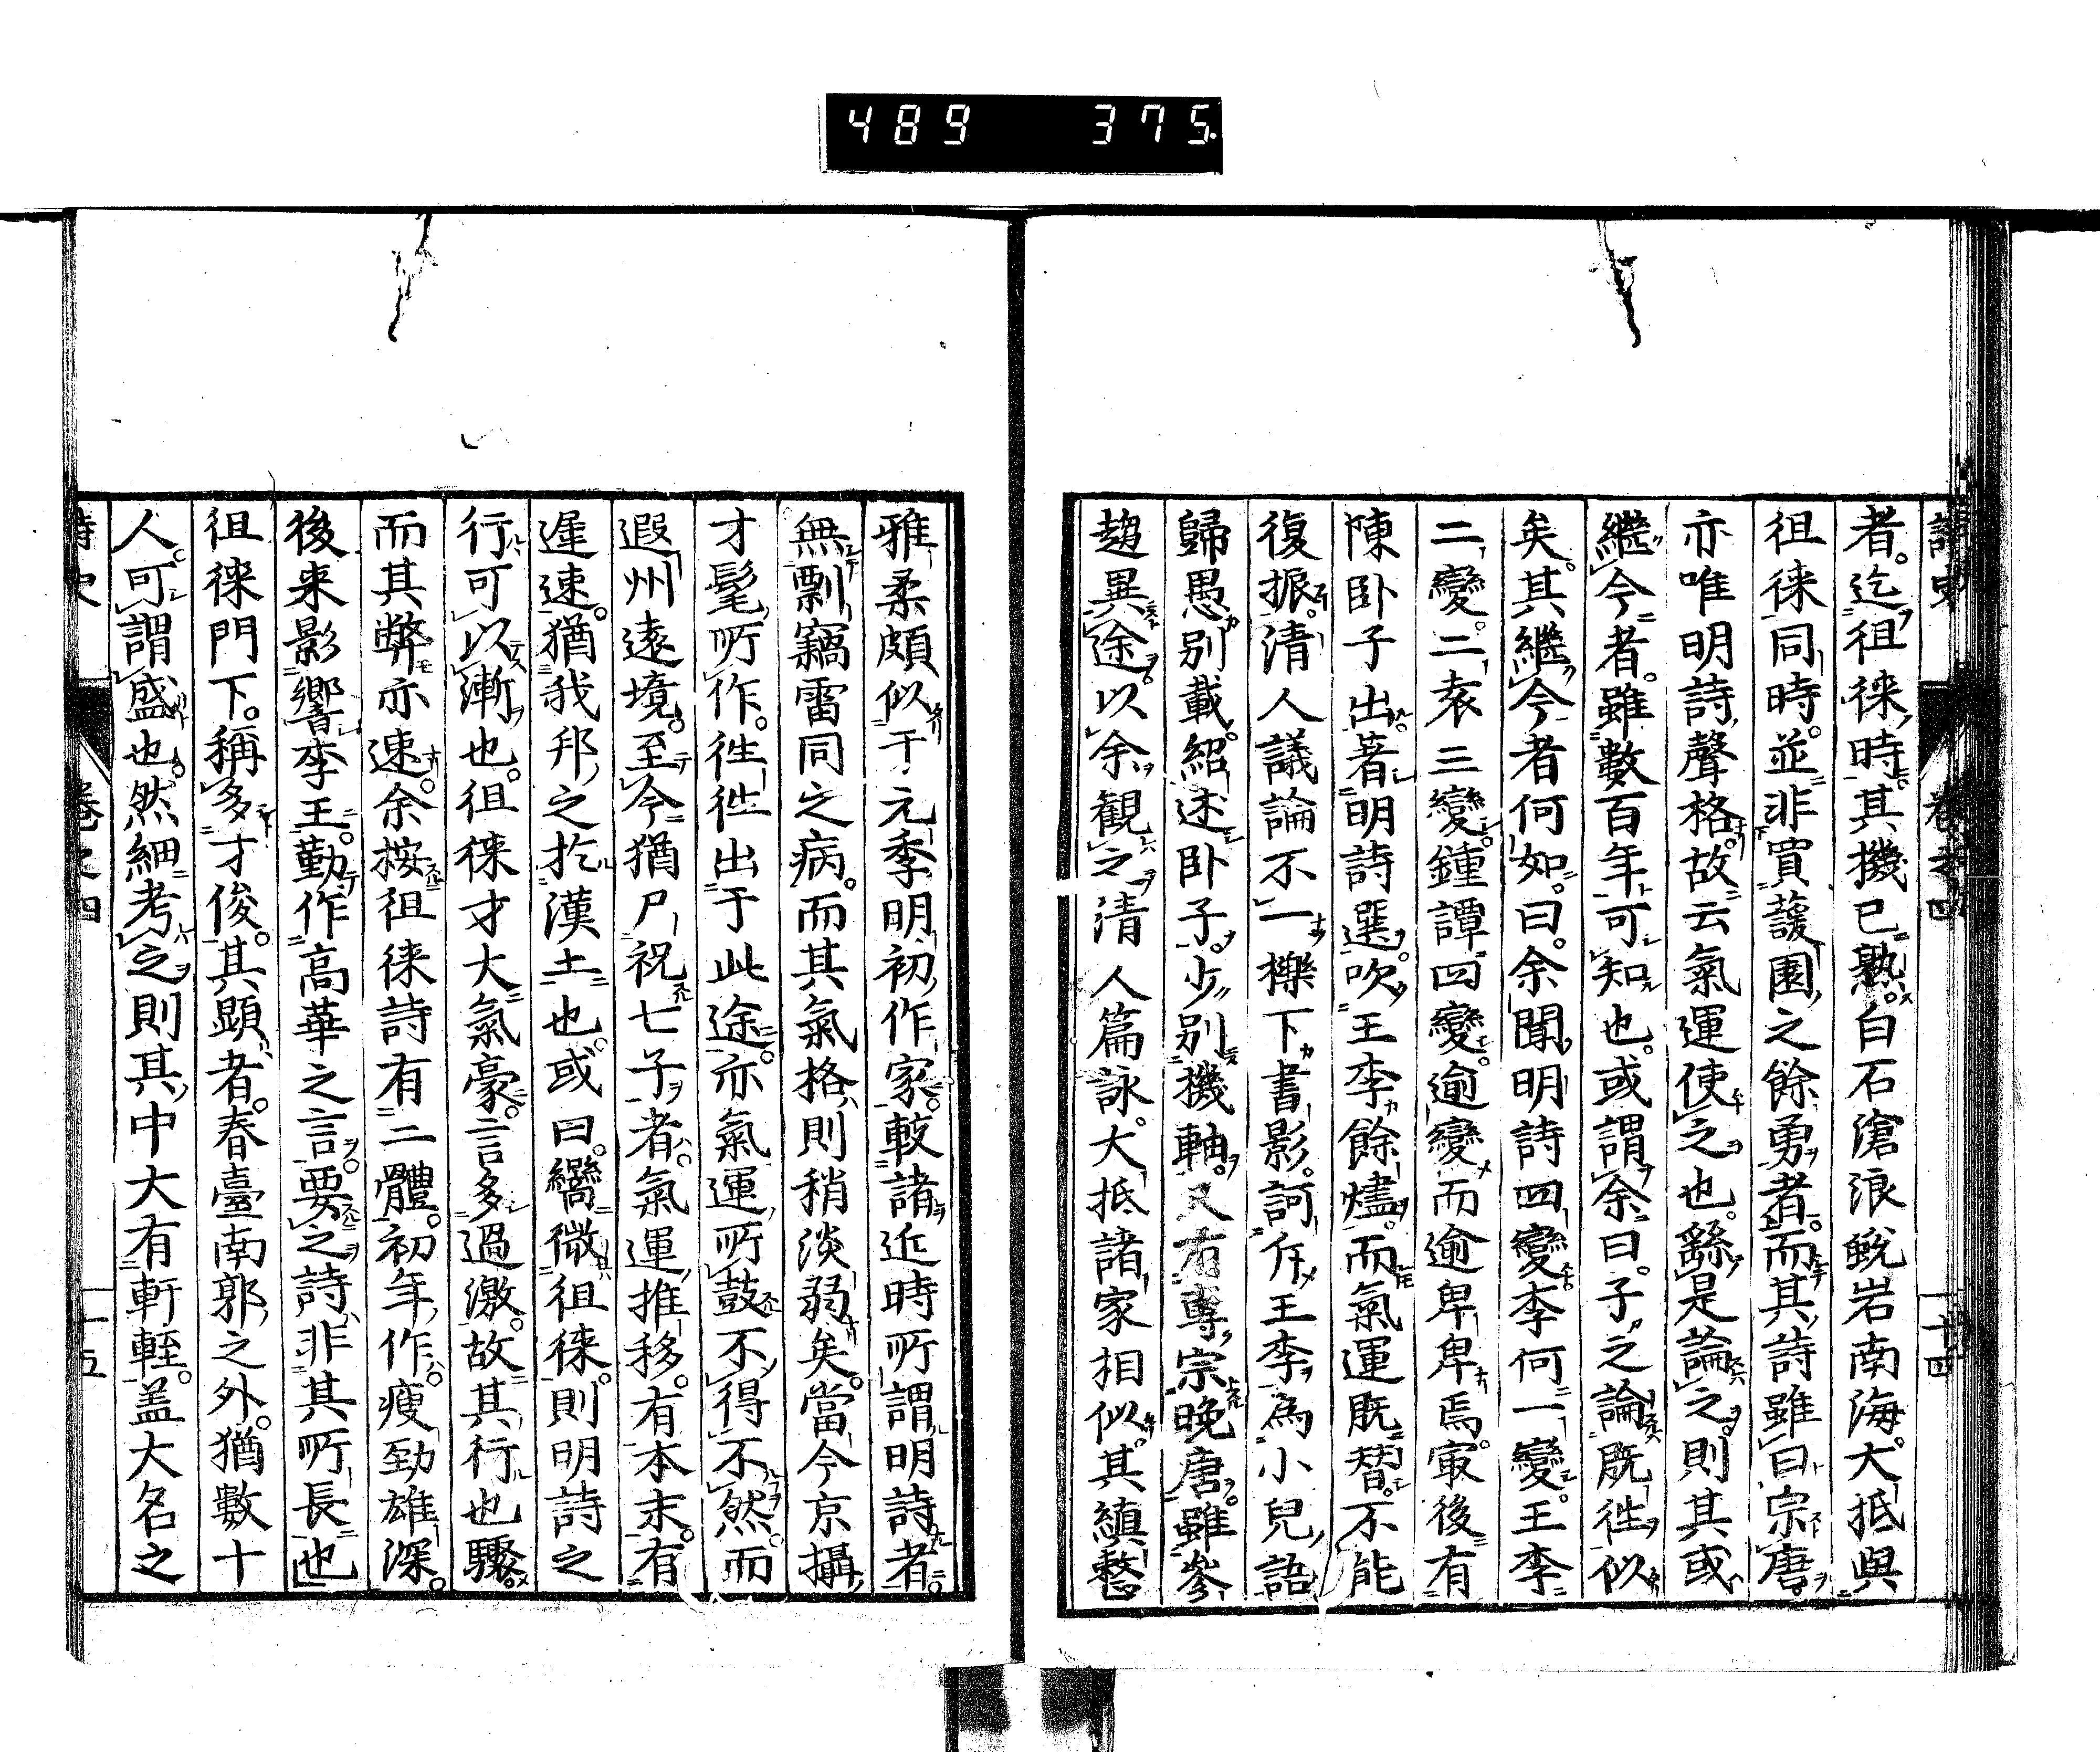 489 375
詩史 卷之四 十四
者。迄徂徠時其機已熟。白石滄浪蛻岩南海。大抵與
徂徠同時。並非買蘐園之餘勇者。而其詩雖曰宗唐。
亦唯明詩聲格。故云氣運使之也。繇是論之。則其或
繼今者。雖數百年可知也。或謂余曰。子之論既徃似
矣。其繼今者何如。曰。余聞明詩四變。李何一變。王李
二變。二袁三變。鍾譚四變。逾變而逾卑卑焉。㝡後有
陳卧子出。著明詩選。吹王李餘燼。而氣運既替。不能
復振。清人議論不一。櫟下書影。訶斥王李為小兒語
歸愚別載。紹述卧子。少別機軸。又有專宗晩唐。雖參
趨異途。以余觀之。清人篇詠。大抵諸家相似。其縝整
雅柔頗似于元季明初作家。較諸近時所謂明詩者。
無剽竊雷同之病。而其氣格則稍淡弱矣。當今京攝
才髦所作。徃徃出于此途。亦氣運所鼓。不得不然。而
遐州遠境。至今猶尸祝七子者。氣運推移。有本末。有
遲速。猶我邦之於漢土也。或曰。繼微徂徠。則明詩之
行可以漸也。徂徠才大氣豪。言多過激。故其行也驟。
而其弊亦速。余按徂徠詩有二體。初年作。瘦勁雄深。
後来影響李王。勤作高華之言。要之詩非其所長也
徂徠門下。稱多才俊。其顕者。春臺南郭之外。猶數十
人。可謂盛也。然細考之。則其中大有軒輊。盖大名之
詩史 卷之四 十五